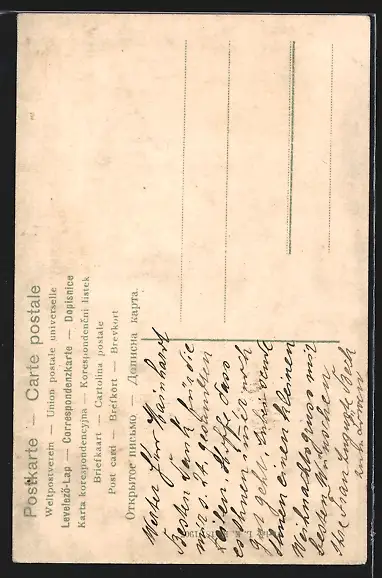 Postkarte — Carte postale
Weltpostverein — Union postale universelle
Levelező-Lap — Correspondenzkarte — Dopisnice
Karta korespondencyjna — Korespondenční lístek
Briefkaart — Cartolina postale
Post card — Brefkort — Brevkort
Открытое письмо. — Дописна карта.
Werter Herr
Besten Dank für die
mir s. Zt. gesandten
Zeilen. Hoffe das
es Ihnen immer noch
gut geht. Indem sende
Ihnen einen kleinen
Weihnachtsgruss mit
besten Wünschen
Ihre